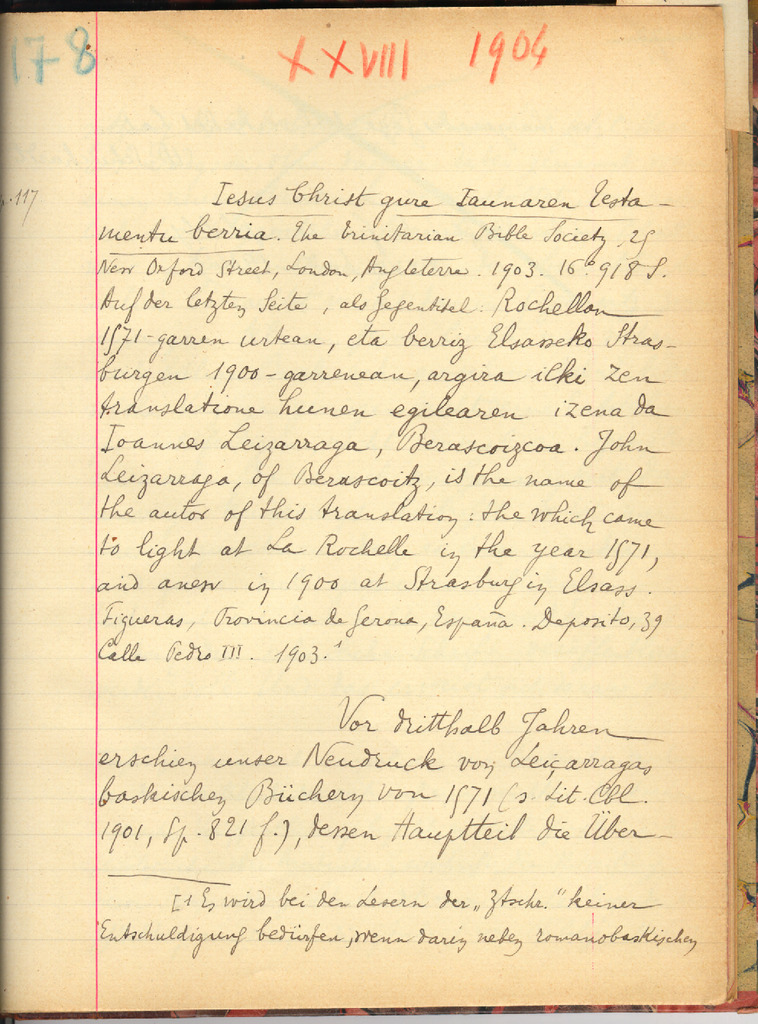 178
XXVIII 1904
p. 117
Iesus Christ gure Iaunaren Testa-
mentu berria. The Trinitarian Bible Society, 25
New Oxford Street, London, Angleterre. 1903. 16° 918 S.
Auf der letzten Seite, als Gegentitel: Rochellan
1571-garren urtean, eta berriz Elsasseko Stras-
burgen 1900-garrenean, argira ilki zen
translatione hunen egilearen izena da
Ioannes Leizarraga, Berascoizcoa. John
Leizarraga, of Berascoitz, is the name of
the autor of this translation: the which came
to light at La Rochelle in the year 1571,
and anew in 1900 at Strasburg in Elsass.
Figueras, Provincia de Gerona, España. Deposito, 39
Calle Pedro III. 1903.¹
Vor dritthalb Jahren
erschien unser Neudruck von Leiçarragas
baskischen Büchern von 1571 (s. Lit. Cbl.
1901, Sp. 821 f.), dessen Hauptteil die Über-
[1 Es wird bei den Lesern der „Ztschr." keiner
Entschuldigung bedürfen, wenn darin neben romanobaskischen